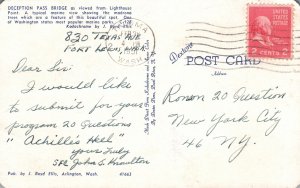 DECEPTION PASS BRIDGE as viewed from Lighthouse
Point. A typical marine view showing the madrona
trees which are a feature of this beautiful spot. One
of Washington's most popular marine parks.
Kodachrome by J. Boyd Ellis
830 TEXAS AVE
PORT
Dear Sir:
I would like
to submit for your
program 20 Questions
"Achilles Heel"
yours Truly
SFC John S. Knoulton
Pub. by J. Boyd Ellis, Arlington, Wash.
41662
POST CARD
Address
2 CENTS 2
Ronson 20 Question
New York City
46 NY.